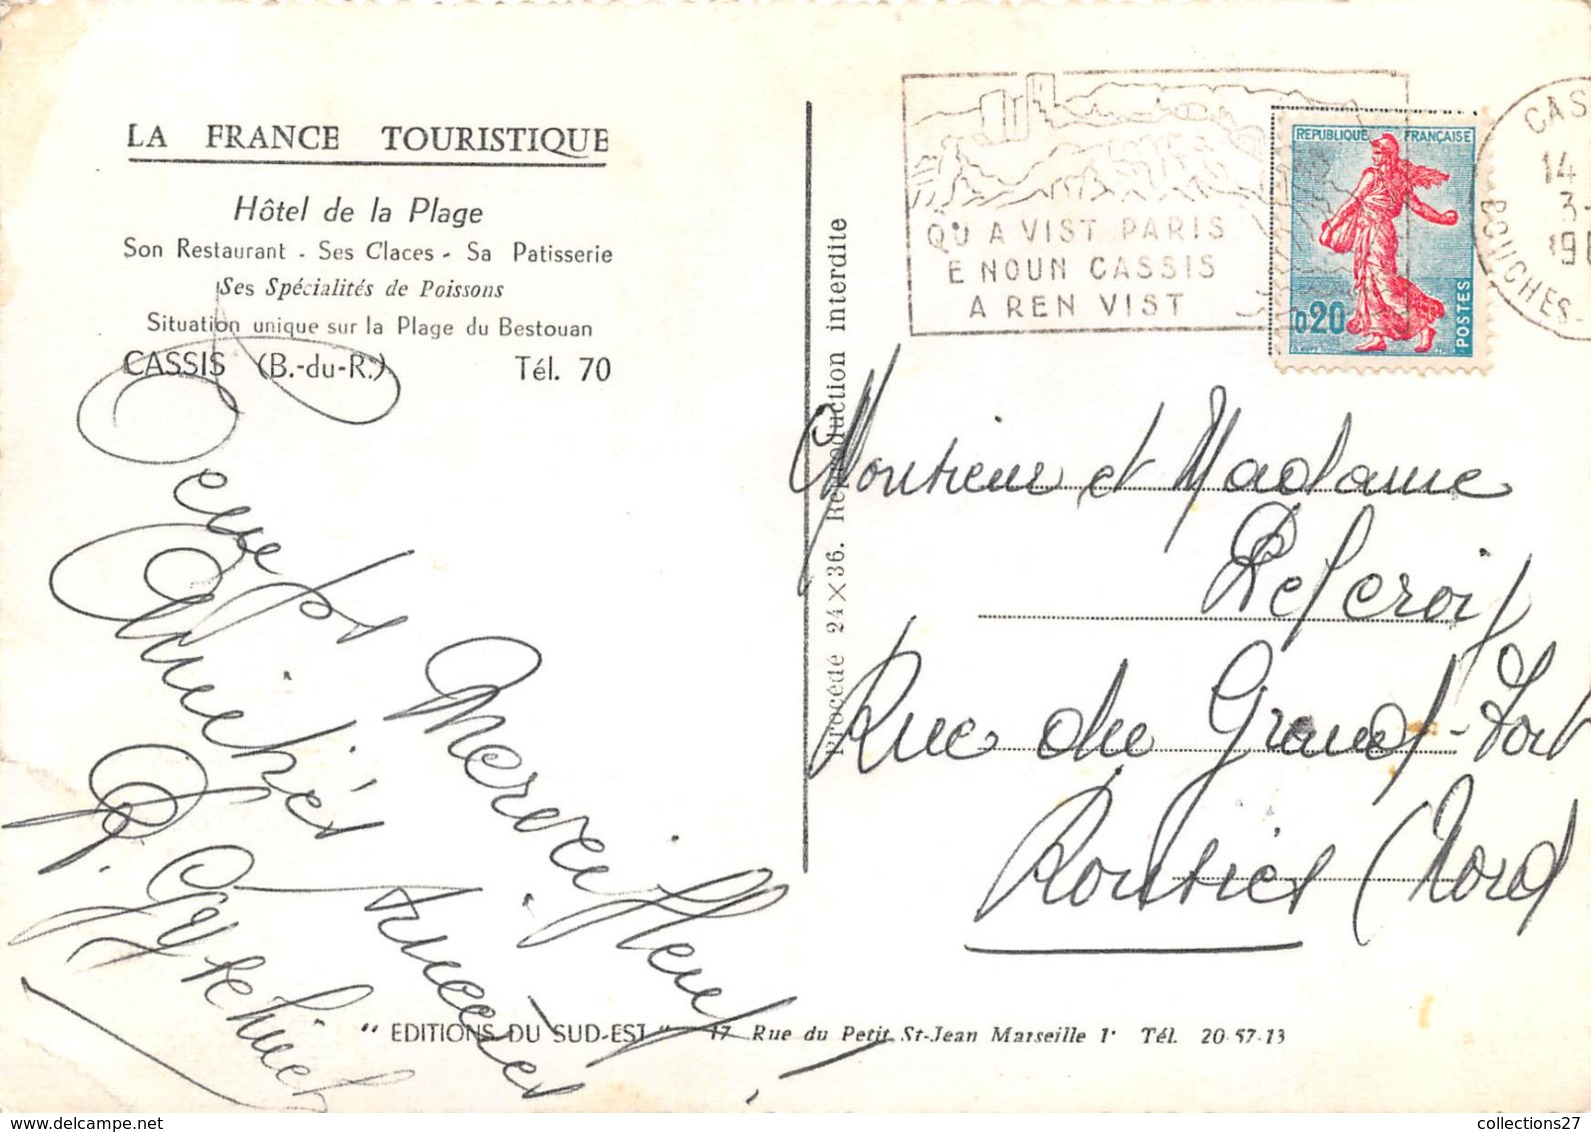 LA FRANCE TOURISTIQUE
Hôtel de la Plage
Son Restaurant - Ses Claces - Sa Patisserie
Ses Spécialités de Poissons
Situation unique sur la Plage du Bestouan
CASSIS (B.-du-R.) Tél. 70
Temps Merveilleux !
Amitiés
Procédé 24×36. Reproduction interdite
QU A VIST PARIS
E NOUN CASSIS
A REN VIST
REPUBLIQUE FRANÇAISE
0,20
POSTES
CAS
14
3-
196
BOUCHES-
Monsieur et Madame
Rue du Grand-Fort
(Nord
" EDITIONS DU SUD-EST " 17 Rue du Petit St-Jean Marseille 1er Tél. 20-57-13
collections27